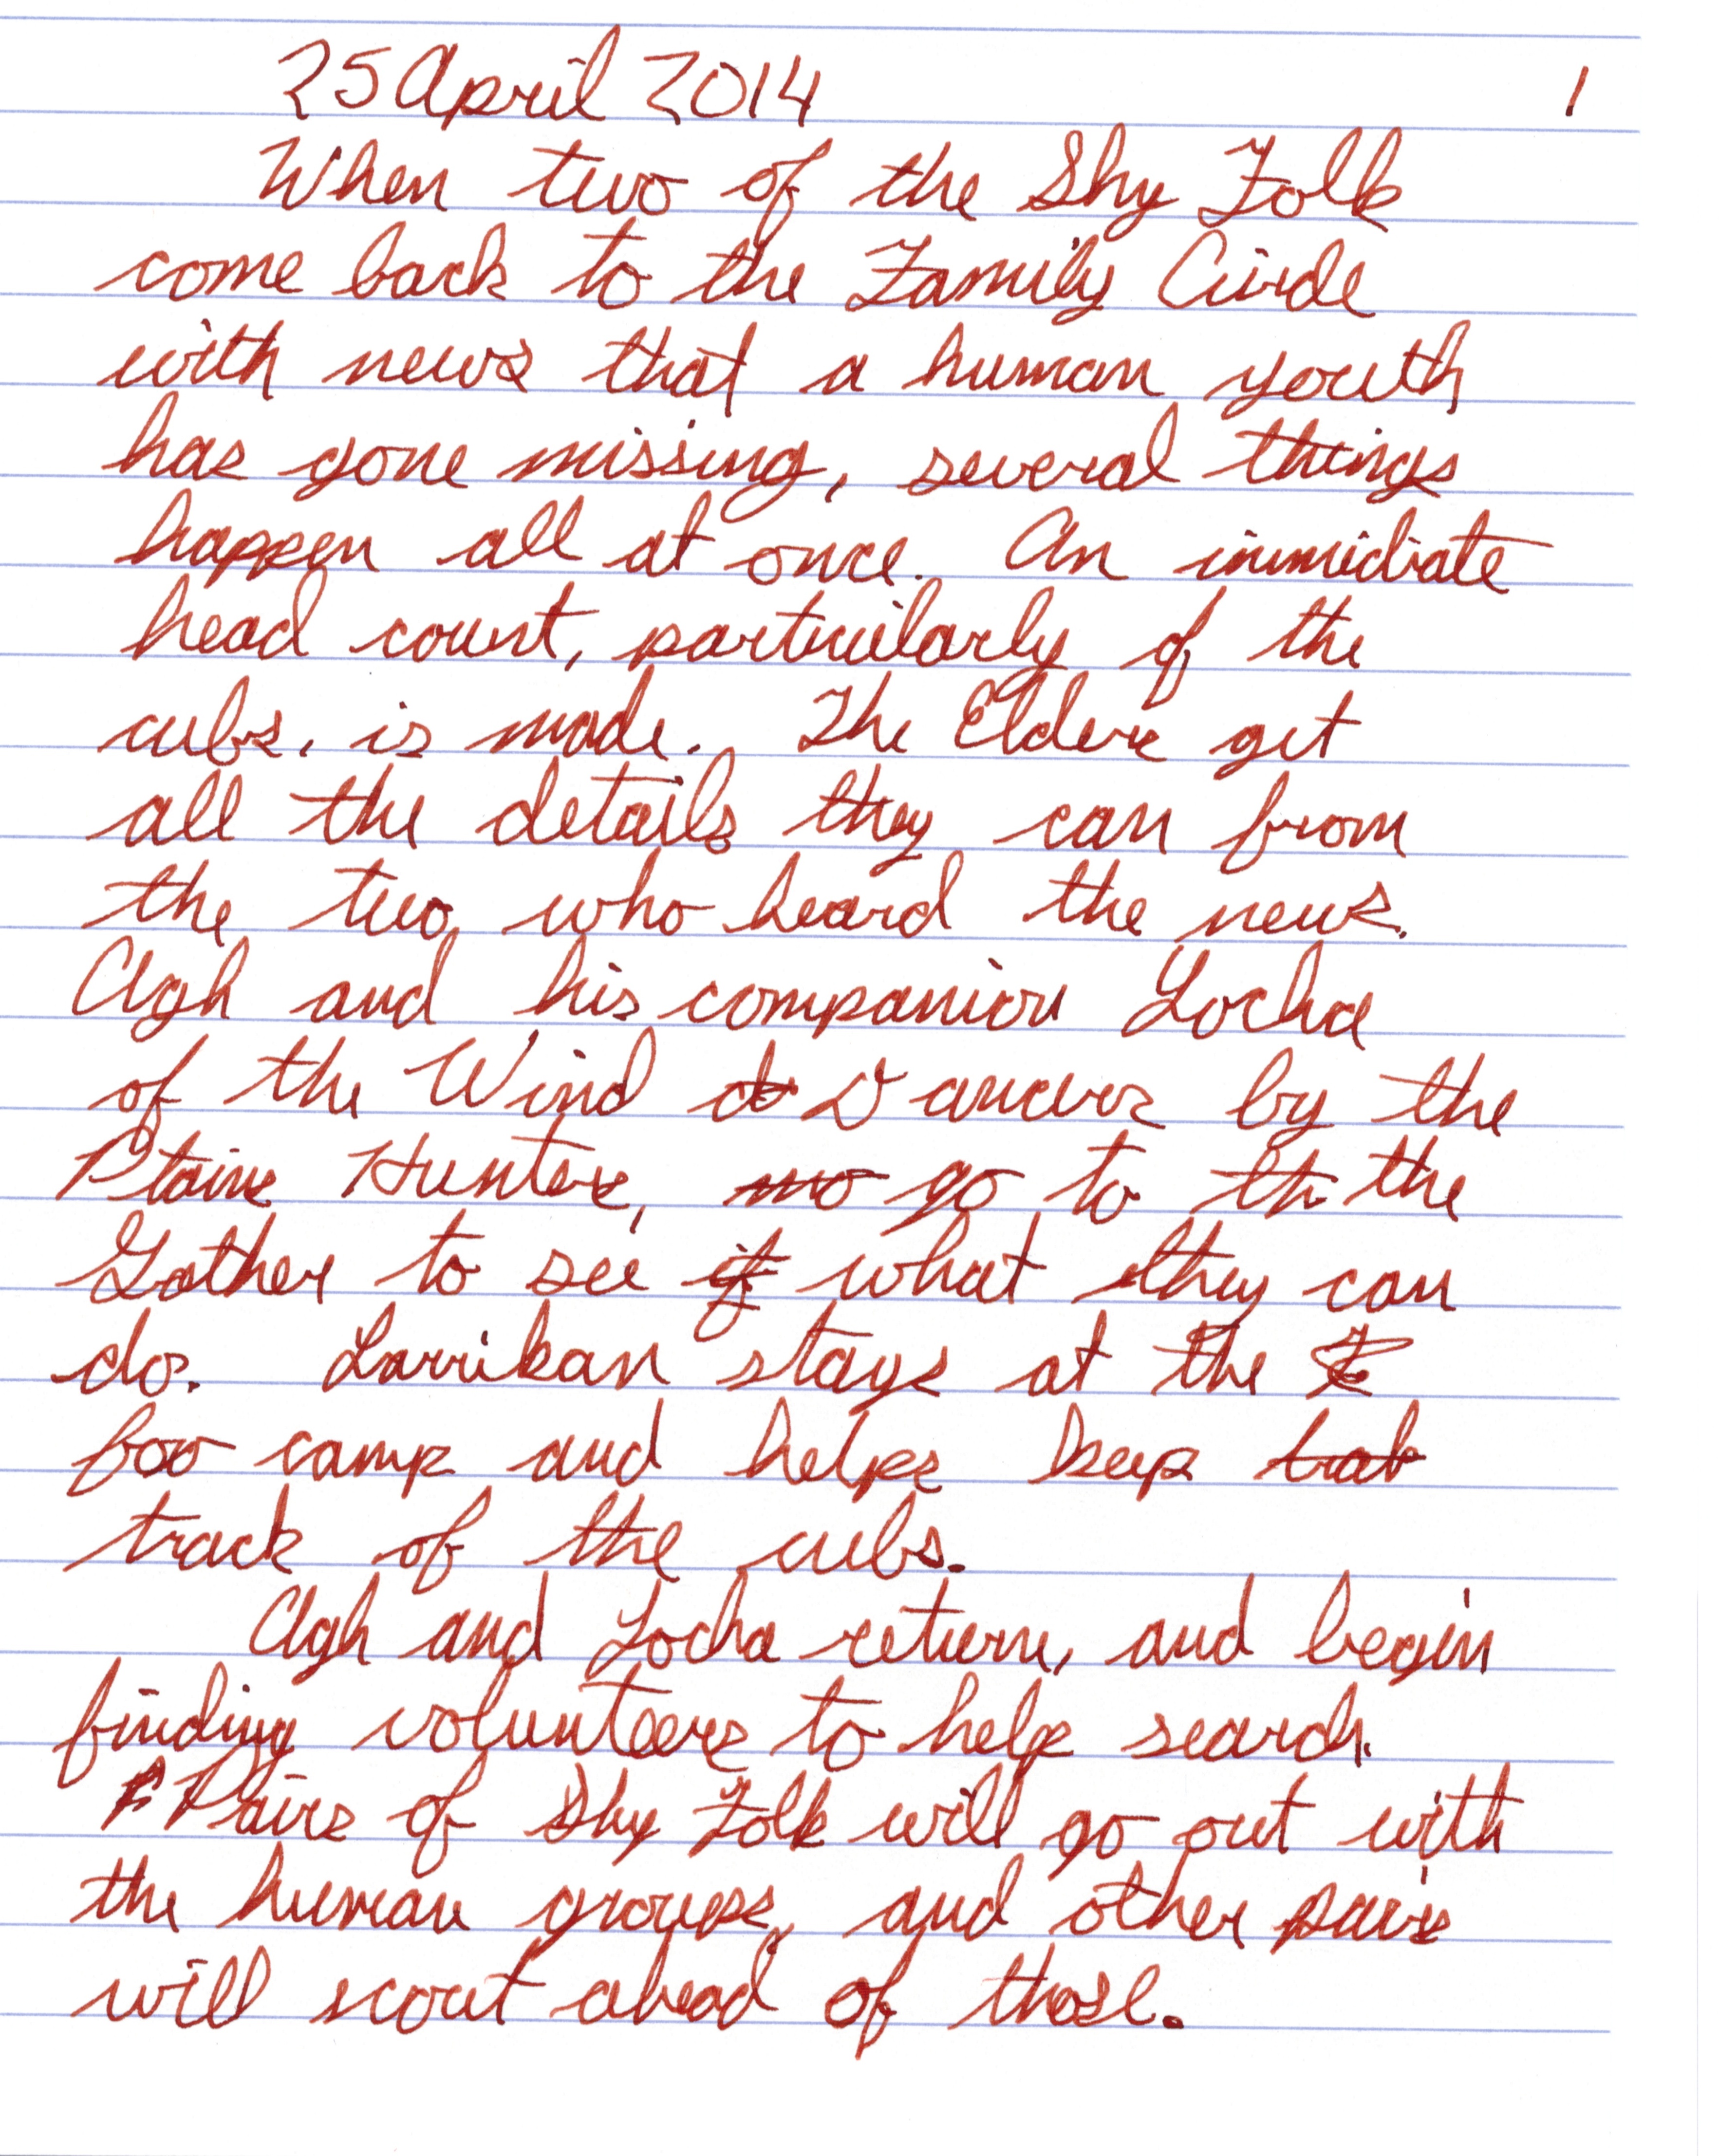 25 April 2014 1
When two of the Shy Folk
come back to the Family Circle
with news that a human youth
has gone missing, several things
happen all at once. An immidiate
head count, particularly of the
cubs, is made. The Elders get
all the details they can from
the two who heard the news.
Agh and his companion Locha
of the Wind d Dancers by the
Plains Hunters, mo go to th the
Gather to see if what they can
do. Larrikan stays at the F
foo camp and helps keep trak
track of the cubs.
Agh and Locha return, and begin
finding volunteers to help search.
P Pairs of Shy Folk will go out with
the human groups, and other pairs
will scout ahead of those.